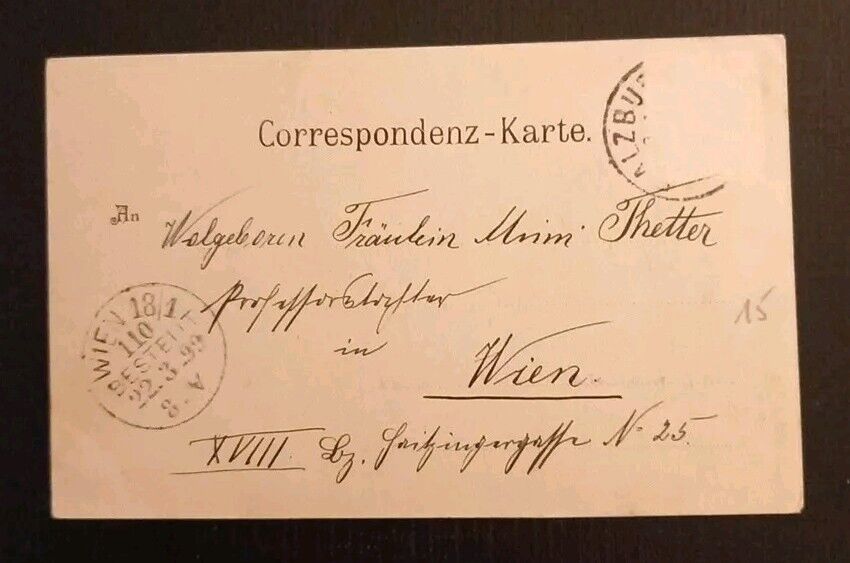 Correspondenz-Karte.
ALZBU
An
Wolgeboren Fräulein Mimi Thetter
Professorstochter
in
Wien.
XVIII. Bz. Haitzingergasse N- 25.
15
WIEN 18/1
110
BESTELLT
22.3.99
8-A